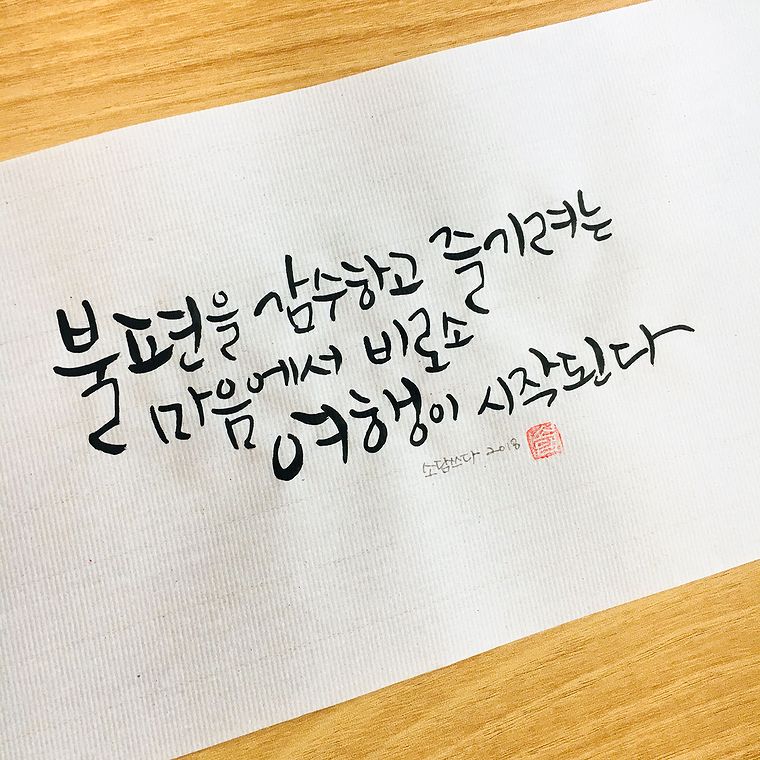 불편을 감수하고 즐기려는
마음에서 비로소
여행이 시작된다
소담쓰다 2018